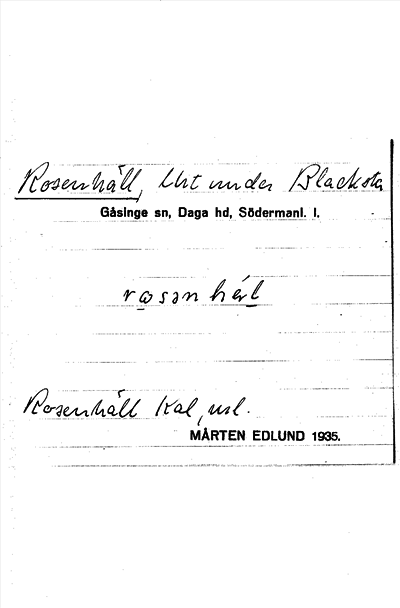 Rosenhäll, Lht under Blacksta
Gåsinge sn, Daga hd, Södermanl. l.
Rosenhäll Kal, usl.
MÅRTEN EDLUND 1935.